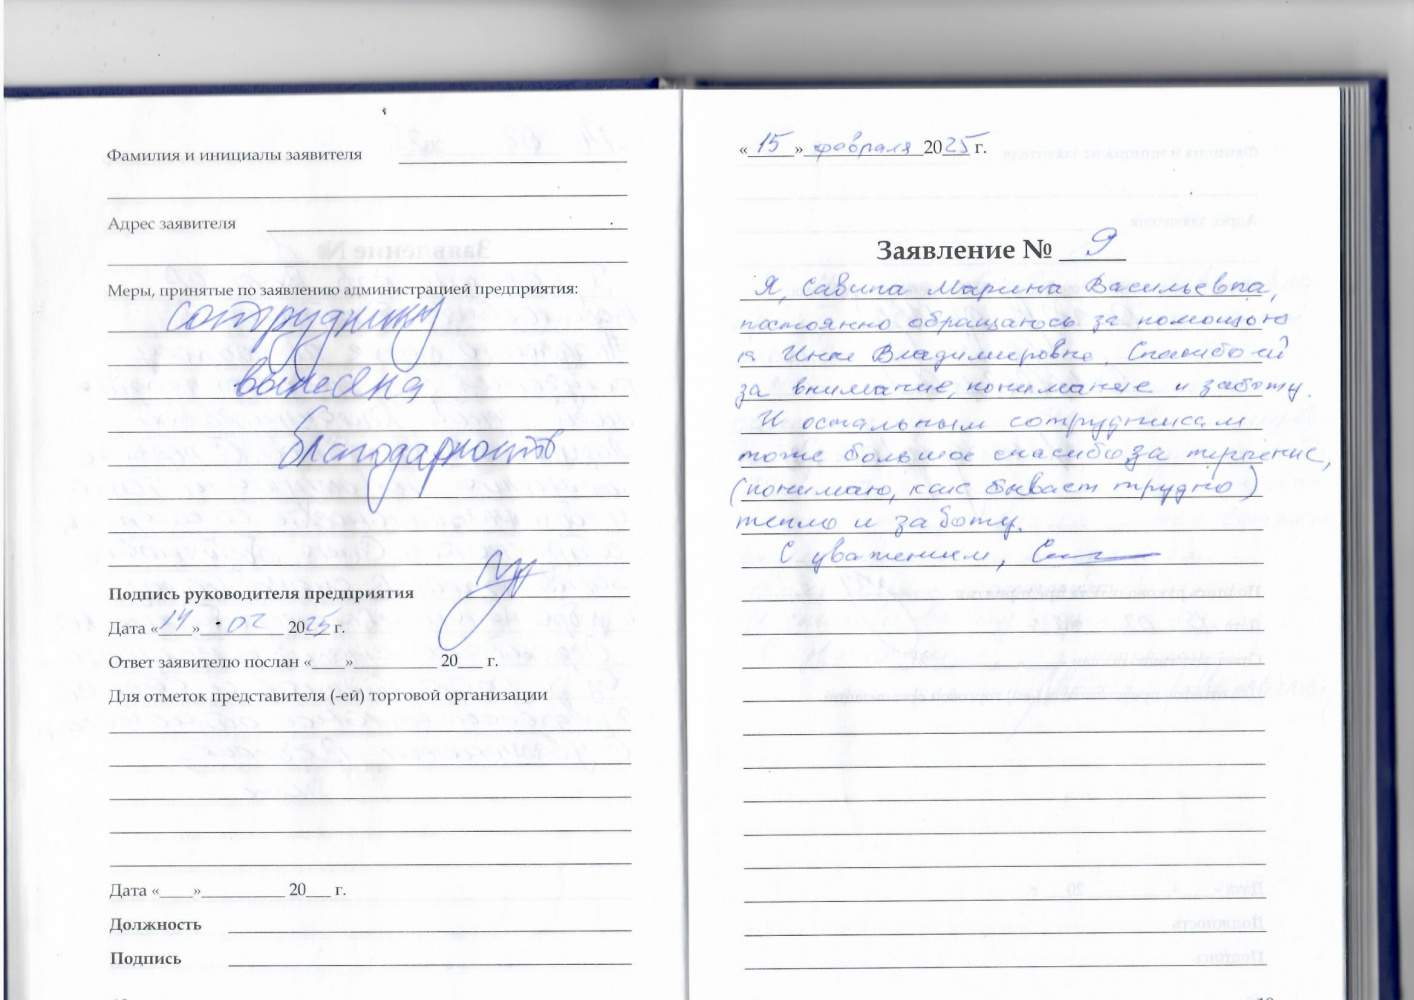 Фамилия и инициалы заявителя
Адрес заявителя
Меры, принятые по заявлению администрацией предприятия:
сотруднику
вынесена
благодарность
Подпись руководителя предприятия
Дата «14» 02 2025 г.
Ответ заявителю послан «___»__________ 20___ г.
Для отметок представителя (-ей) торговой организации
Дата «____»__________ 20___ г.
Должность
Подпись
«15» февраля 2025 г.
Заявление № 9
Я, Савина Марина Васильевна,
постоянно обращаюсь за помощью
к Инне Владимировне. Спасибо ей
за внимание, понимание и заботу.
И остальным сотрудникам
тоже большое спасибо за терпение,
(понимаю, как бывает трудно)
тепло и заботу.
С уважением,